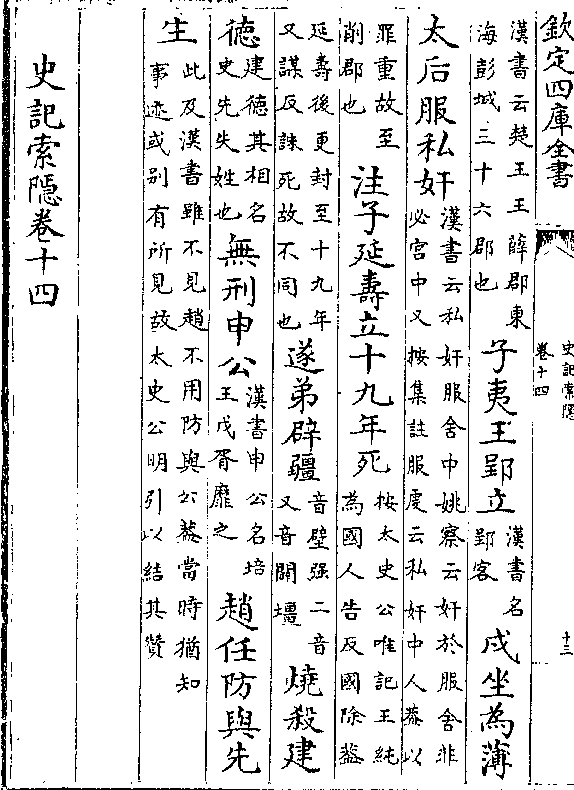 欽定四庫全書
史記索隱
卷十四
十三
漢書云楚王王薛郡東
海彭城三十六郡也
子夷王郢立
漢書名
郢客
戊坐為薄
太后服私奸
漢書云私奸服舍中姚察云奸於服舍非
必宫中又按集註服虔云私奸中人葢以
罪重故至
削郡也
注子延壽立十九年死
按太史公唯記王純
為國人告反國除葢
延壽後更封至十九年
又謀反誅死故不同也
遂弟辟疆
音壁强二音
又音闢壃
燒殺建
德
建德其相名
史先失姓也
無刑申公
漢書申公名培
王戊胥靡之
趙任防與先
生
此及漢書雖不見趙不用防與公葢當時猶知
事迹或别有所見故太史公明引以結其贊
史記索隱卷十四